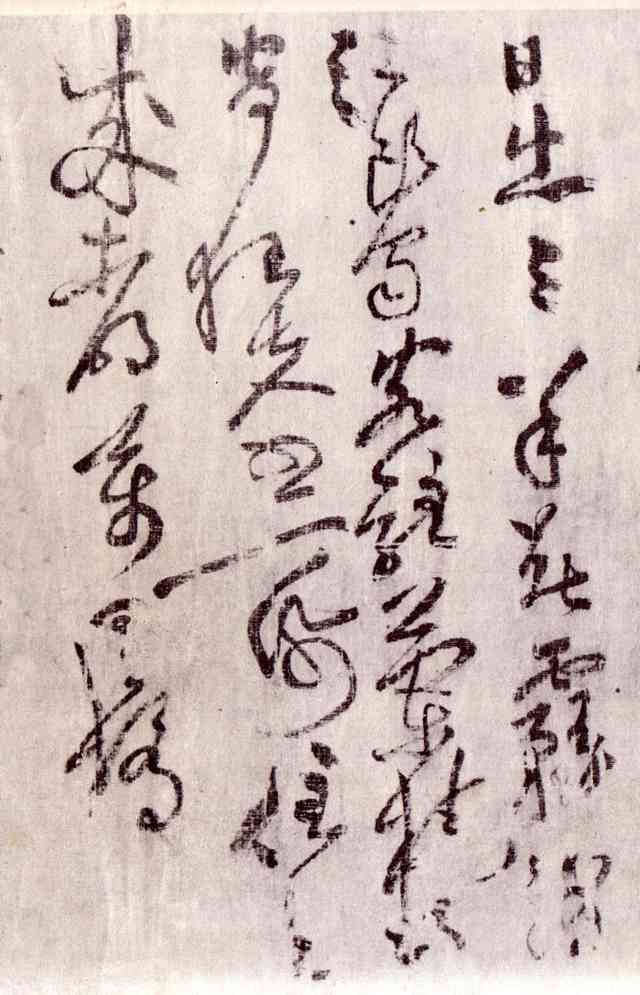 日出三竿春霧消
江頭蜀客駐蘭橈憑
寄狂夫書一紙住在
成都萬里橋